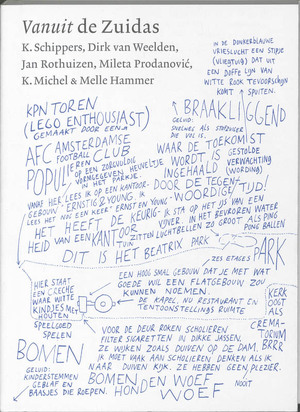 Vanuit de Zuidas
K. Schippers, Dirk van Weelden,
Jan Rothuizen, Mileta Prodanović,
K. Michel & Melle Hammer
IN DE DONKERBLAUWE
VRIESLUCHT EEN STIPJE
(VLIEGTUIG) DAT UIT
EEN DOFFE LIJN VAN
WITTE ROOK TEVOORSCHIJN
KOMT SPUITEN.
KPN TOREN
(LEGO ENTHOUSIAST)
GEMAAKT DOOR EEN
BRAAKLIGGEND
GELUID:
SNELWEG ALS STOFZUIGER
DIE VOL IS.
AFC AMSTERDAMSE
FOOTBALL CLUB
POPULIEREN
OP EEN ZORGVULDIG
VORMGEGEVEN HEUVELTJE
IN HET PARKJE.
WAAR DE TOEKOMST
WORDT IS GESTOLDE
VERWACHTING
INGEHAALD (WORDING)
DOOR DE TEGEN-
WOORDIGE TIJD!
VANAF HIER LEES IK OP EEN KANTOOR-
GEBOUW ERNSTIG & YOUNG. IK
LEES HET NOG EEN KEER ERNST EN YOUNG
HET HEEFT DE KEURIG-
HEID VAN EEN KANTOOR
TUIN
IK STA OP HET IJS VAN EEN
VIJVER. IN HET BEVROREN WATER
ZITTEN LUCHTBELLEN ZO GROOT ALS PING
PONG BALLEN
DIT IS HET BEATRIX PARK
ZES ETAGES
PARK
HIER STAAT
EEN CRECHE
WAAR WITTE
KINDJES MET
HOUTEN
SPEELGOED
SPELEN
EEN HOOG SMAL GEBOUW DAT JE MET WAT
GOEDE WIL EEN FLATGEBOUW ZOU
KUNNEN NOEMEN.
DE KAPEL, NU RESTAURANT EN
TENTOONSTELLINGS RUIMTE
KERK
OOGT
ALS
CREMA-
TORIUM
BRRR
BOMEN
GELUID:
KINDERSTEMMEN
GEBLAF EN
BAASJES DIE ROEPEN.
VOOR DE DEUR ROKEN SCHOLIEREN
FILTER SIGARETTEN IN DIKKE JASSEN.
ZE WIJKEN ZOALS DUIVEN OP DE DAM,
IK MOET VAAK AAN SCHOLIEREN DENKEN ALS IK
NAAR DUIVEN KIJK. ZE HEBBEN GEEN PLEZIER.
BOMEN EN WOEF
HONDEN WOEF
NOOIT